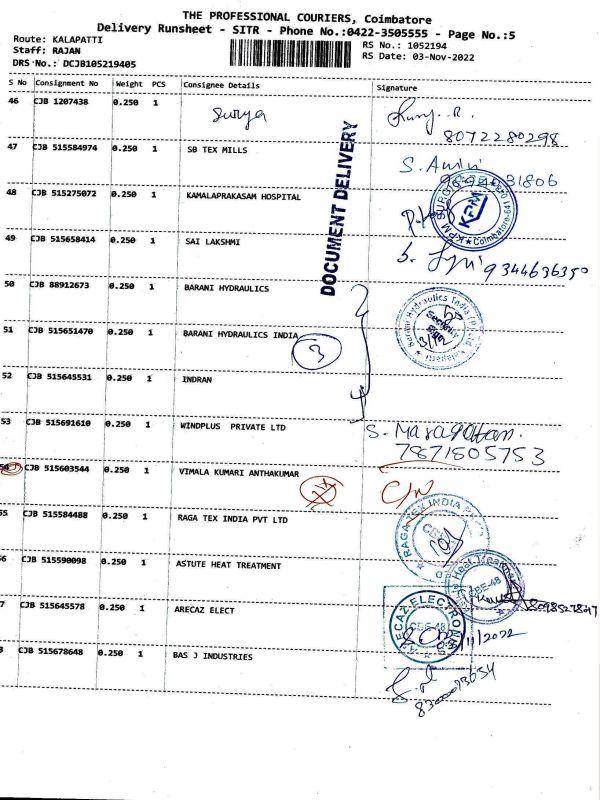 THE PROFESSIONAL COURIERS, Coimbatore
Delivery Runsheet - SITR - Phone No.:0422-3505555 - Page No.:5
Route: KALAPATTI
Staff: RAJAN
DRS No.: DCJB105219405
RS No.: 1052194
RS Date: 03-Nov-2022
S No Consignment No Weight PCS Consignee Details Signature
46 CJB 1207438 0.250 1 Surya
8072280298
47 CJB 515584974 0.250 1 SB TEX MILLS
48 CJB 515275072 0.250 1 KAMALAPRAKASAM HOSPITAL
KPM
49 CJB 515658414 0.250 1 SAI LAKSHMI
9344636350
DOCUMENT DELIVERY
50 CJB 88912673 0.250 1 BARANI HYDRAULICS
51 CJB 515651470 0.250 1 BARANI HYDRAULICS INDIA
3
52 CJB 515645531 0.250 1 INDRAN
53 CJB 515691610 0.250 1 WINDPLUS PRIVATE LTD
7871805753
CJB 515603544 0.250 1 VIMALA KUMARI ANTHAKUMAR
55 CJB 515584488 0.250 1 RAGA TEX INDIA PVT LTD
RAGA TEX INDIA
CJB 515590098 0.250 1 ASTUTE HEAT TREATMENT
CBE-48
CJB 515645578 0.250 1 ARECAZ ELECT
CBE-48
CJB 515678648 0.250 1 BAS J INDUSTRIES